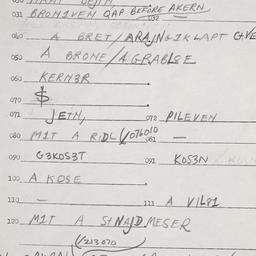 031 BRON1VEN QAP BEFORE AKERN
032
040 A BRET/ARAJNGIKLAPT GIVE
050 A BROME/AGRABLSE
060 KERN3R
070 $
071 JETH, 072 PILEVEN
080 MIT A RIDL (/076010 081 —
090 G3KOS3T 091 KOS3N
100 A KOSE
110 — 111 A VIL81
120 MIT A StNAJD MESER
(/213070